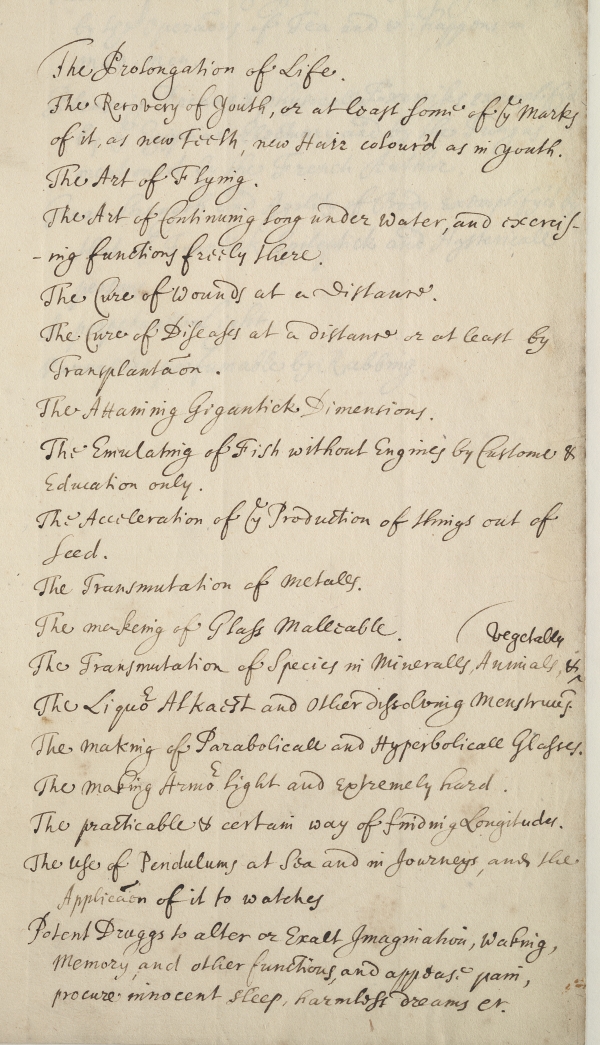 The Prolongation of Life.
The Recovery of Youth, or at least some of ye Marks
of it, as new Teeth, new Hair colour'd as in youth.
The Art of Flying.
The Art of Continuing long under water, and exercis-
-ing functions freely there.
The Cure of Wounds at a Distance.
The Cure of Diseases at a distance or at least by
Transplantãon.
The Attaining Gigantick Dimensions.
The Emulating of Fish without Engines by Custome &
Education only.
The Acceleration of ye Production of things out of
Seed.
The Transmutation of Metalls.
The makeing of Glass Malleable.
Vegetabls
The Transmutation of Species in Mineralls, Animals, &
The Liquor Alkaest and other dissolving Menstruums.
The making of Parabolicall and Hyperbolicall Glasses.
The making Armor light and extremely hard.
The practicable & certain way of finding Longitudes.
The use of Pendulums at Sea and in Journeys, and the
Applicãon of it to watches
Potent Druggs to alter or Exalt Imagination, Waking,
Memory, and other functions, and appease pain,
procure innocent sleep, harmless dreams etc.